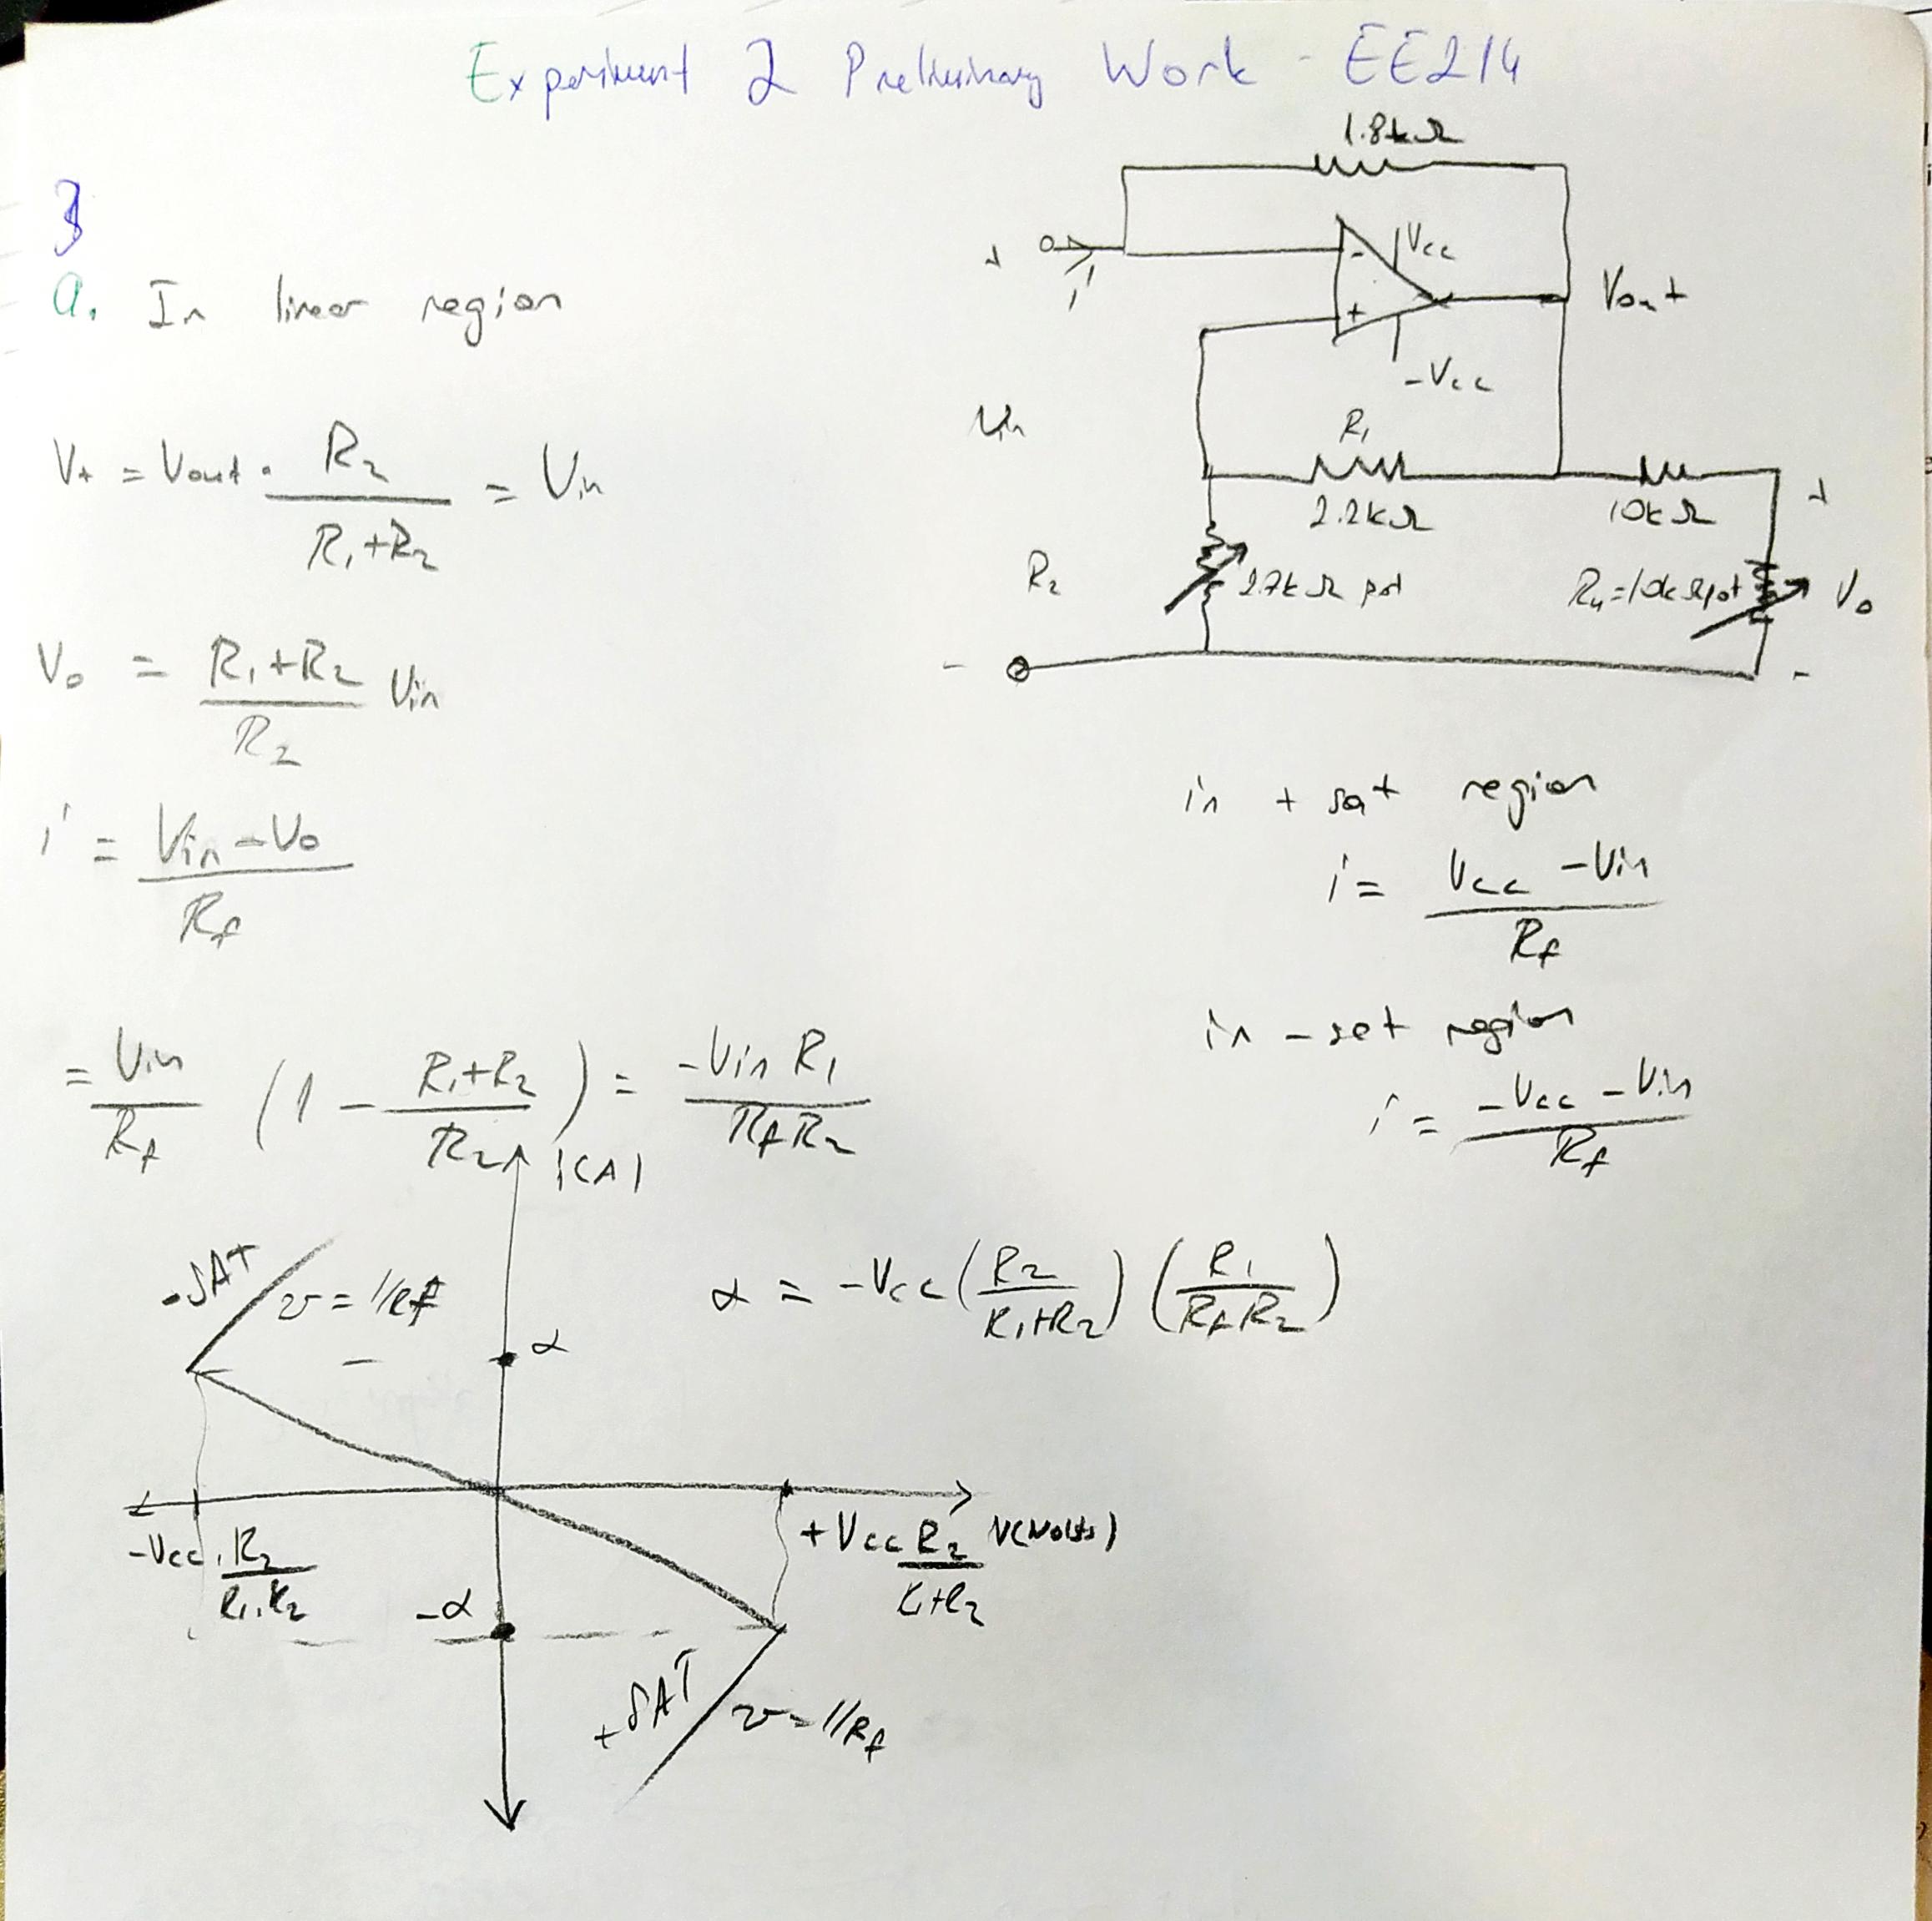 Experiment 2 Preliminary Work - EE214
3
a. In linear region
V+ = Vout . R2 / (R1+R2) = Vin
V0 = (R1+R2) / R2 Vin
i = (Vin - V0) / Rf
= Vin / Rf (1 - (R1+R2) / R2) = -Vin R1 / (Rf R2)
1.8kΩ
+
i
-
Vcc
Vout
+
-Vcc
Vin
R1
2.2kΩ
10kΩ
+
R2
2.7kΩ pot
R4=10kΩpot
V0
-
-
in + sat region
i = (Vcc - Vin) / Rf
in - sat region
i = (-Vcc - Vin) / Rf
i(A)
-SAT
= 1/Rf
α
α = -Vcc (R2 / (R1+R2)) (R1 / (Rf R2))
-Vcc . R2 / (R1.R2)
+Vcc R2 / (R1+R2)
V(Volts)
-α
+SAT
= 1/Rf